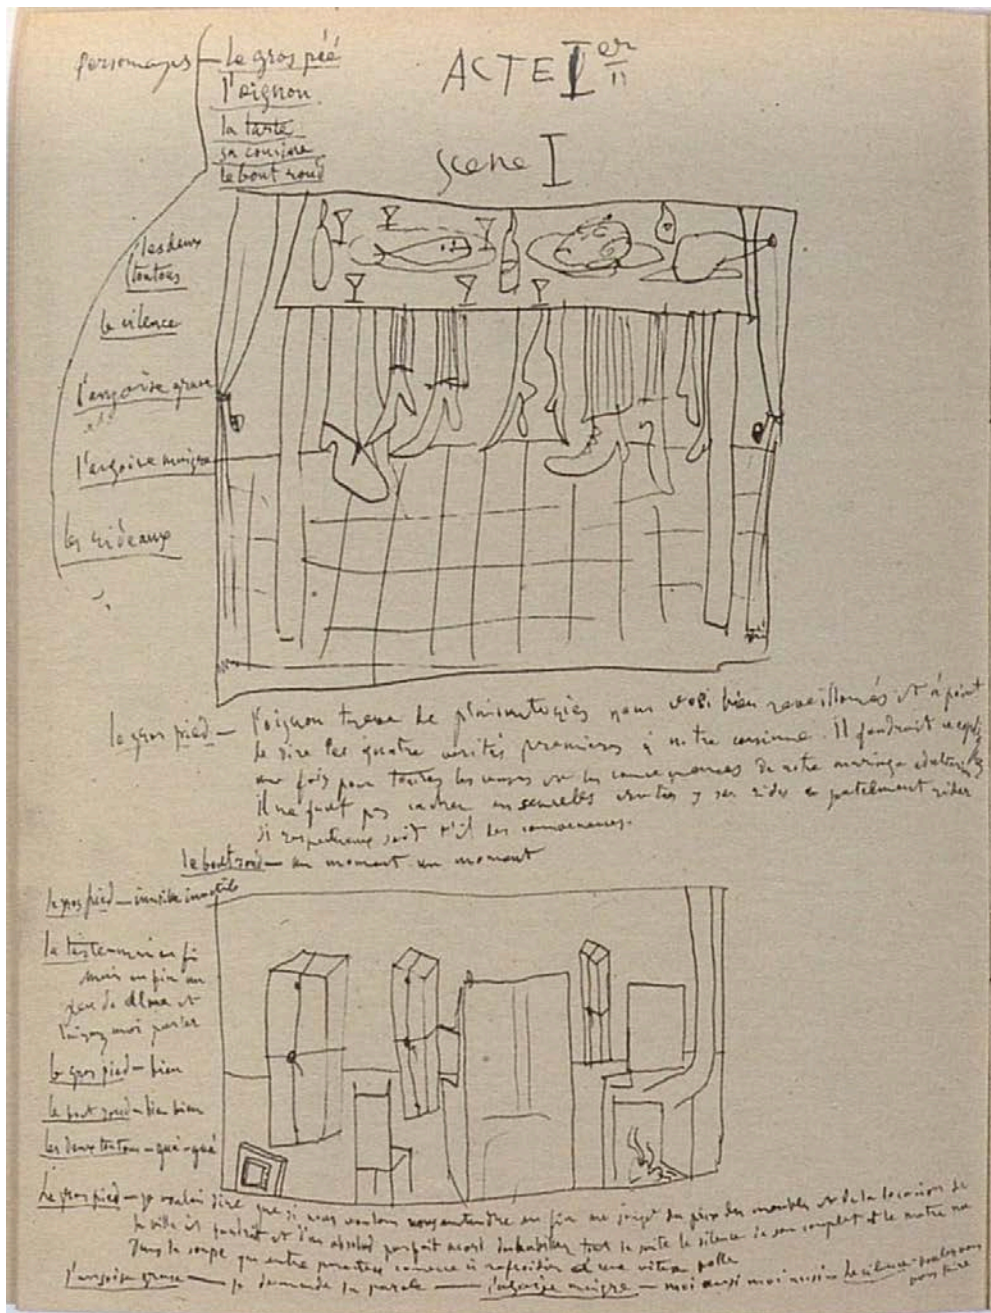 personages — le gros pié
l'oignon
la tarte
sa cousine
le bout rond
les deux
toutous
le silence
l'angoise grase
l'angoise maigre
les rideaux
ACTE I er
scene I
le gros pied — l'oignon treve de plaisanteries nous voici bien reveillonnés et à point
de dire les quatre verités premieres à notre cousinne. Il faudrait
une fois pour toutes les causes ou les consequences de notre mariage
il ne faut pas cacher ses semelles rider
si respectueux soit t'il des convenances.
le bout rond — un moment un moment
le gros pied — inutile inutile
la tarte — mais en fin
mais en fin un
peu de calme et
laissez moi parler
le gros pied — bien
le bout rond — bien bien
les deux toutous — guá-guá
Le gros pied — je voulais dire que si nous voulons nous entendre en fin au sujet du prix des meubles et de la location de
la villa et d'un absolud parfait acord tout de suite le silence de son complet et le mettre nu
dans la soupe qui entre comence à refroidir folle
l'angoise grase — je demande la parole — l'angoise maigre — moi aussi moi aussi — Le silence — voulez vous
vous taire